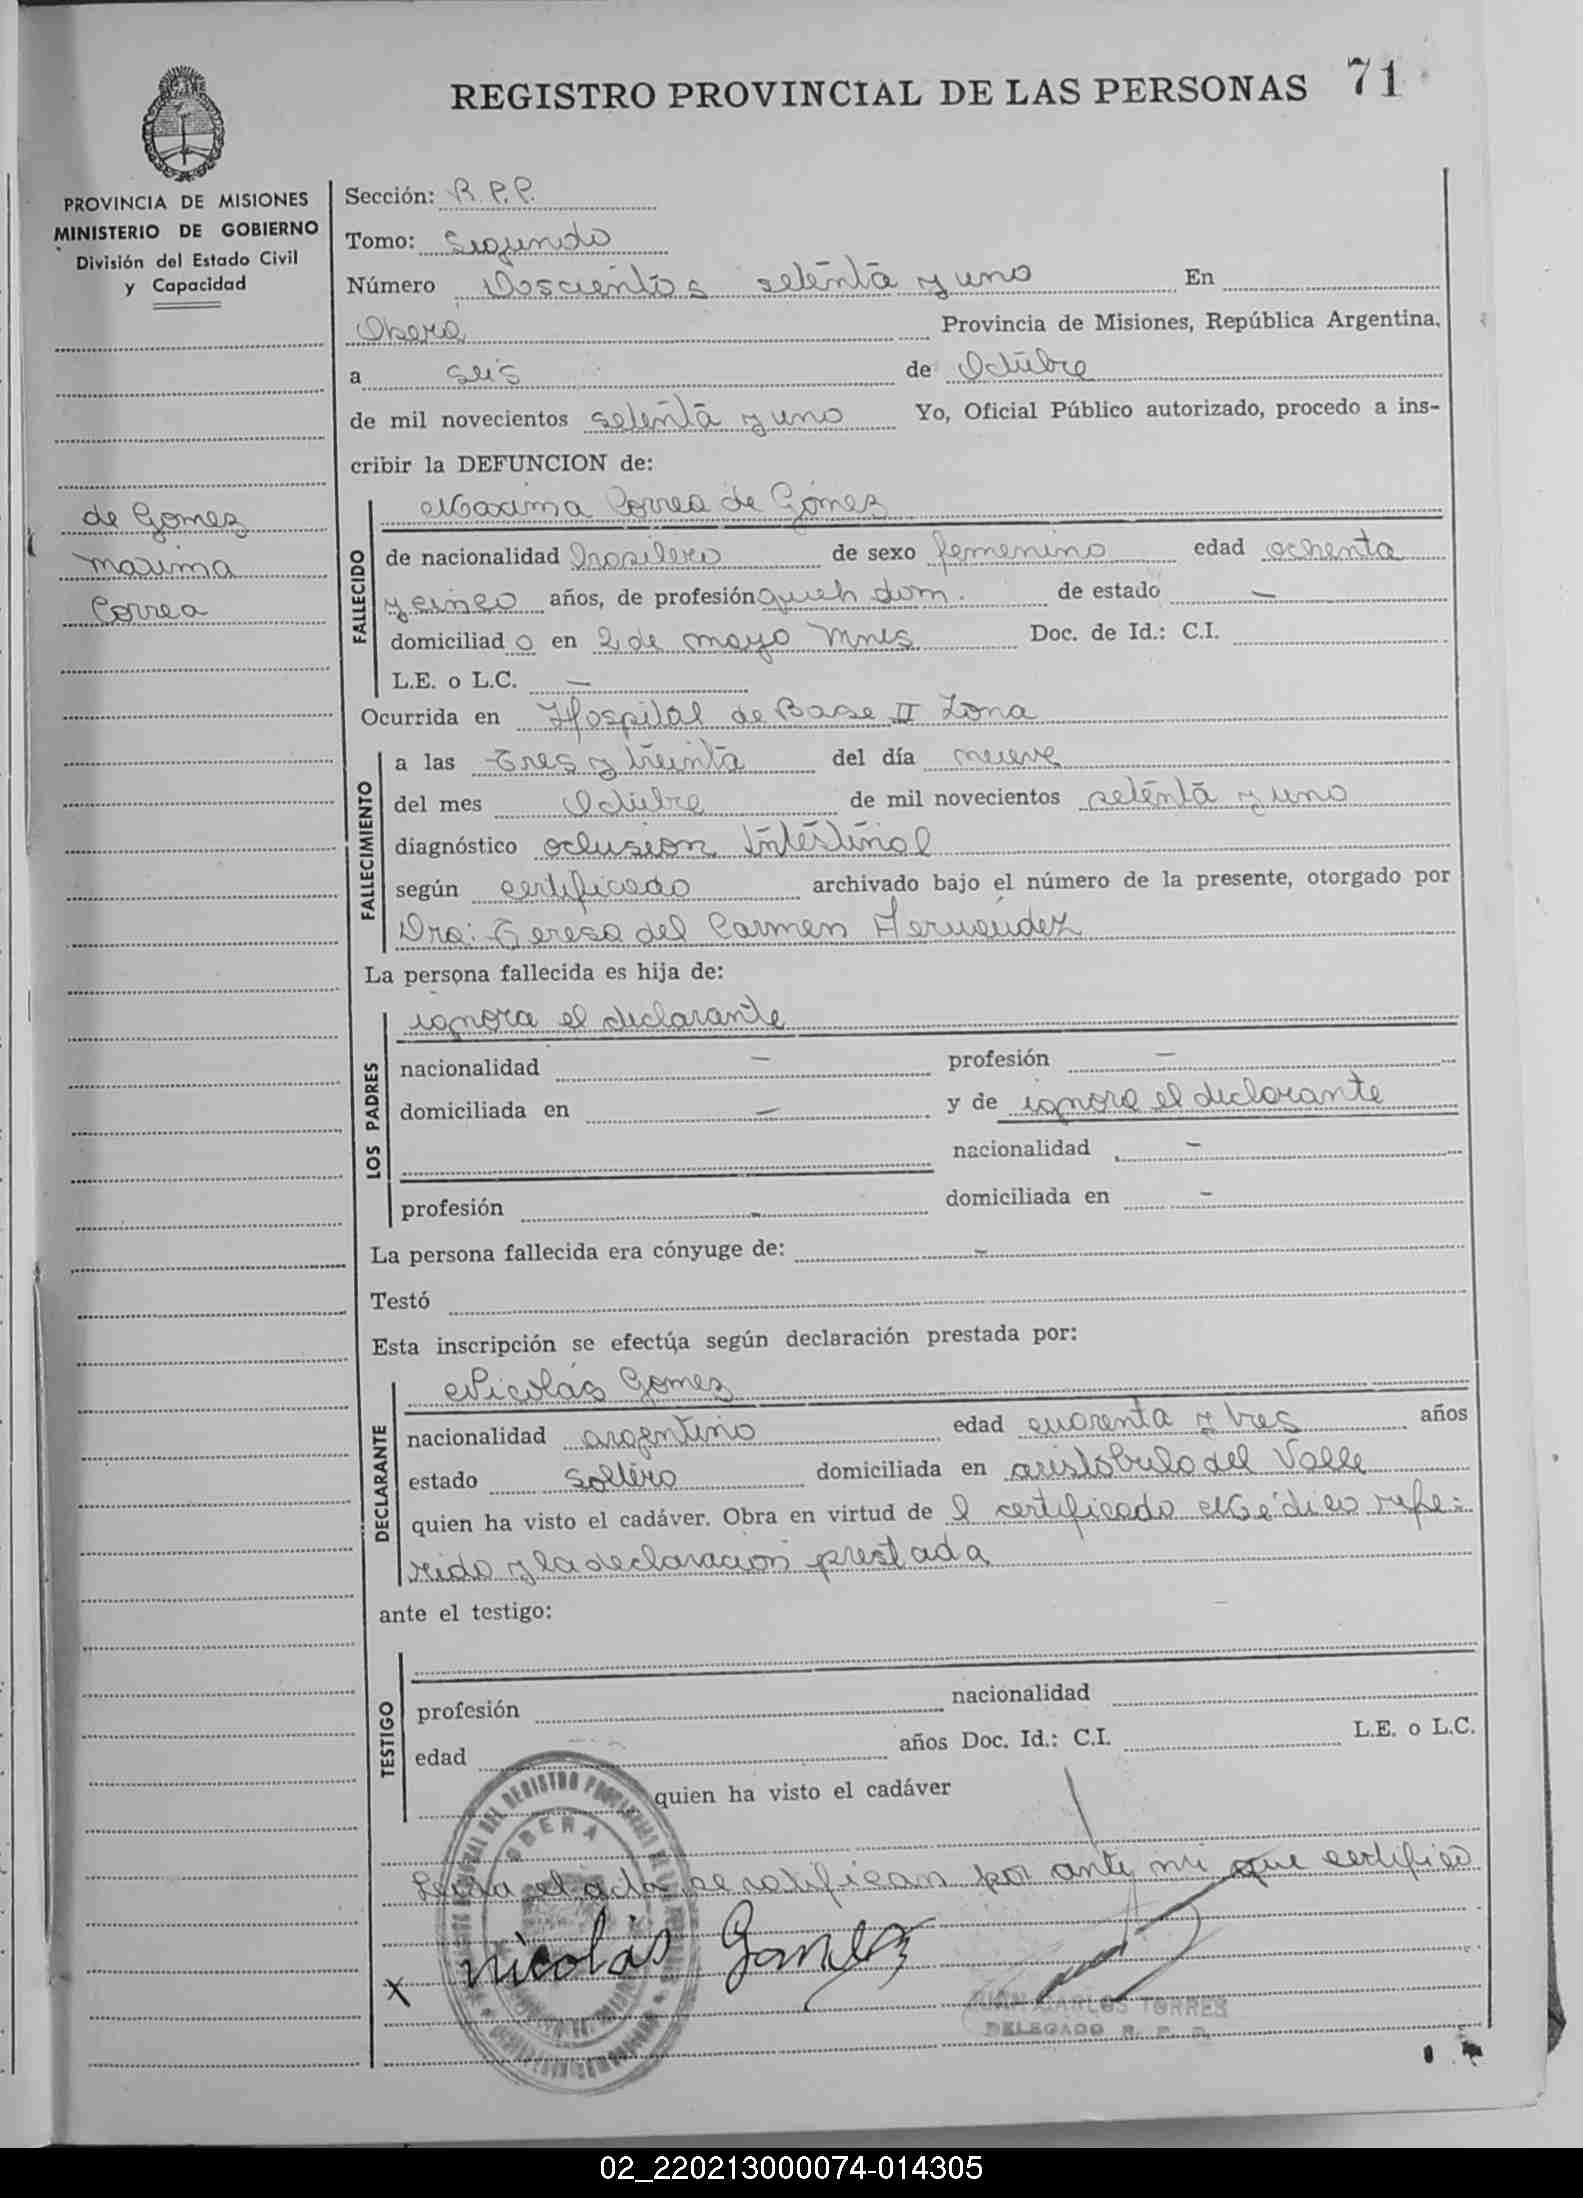 REGISTRO PROVINCIAL DE LAS PERSONAS 71
PROVINCIA DE MISIONES
MINISTERIO DE GOBIERNO
División del Estado Civil
y Capacidad
de Gomez
Maxima
Correa
Sección: R.P.P.
Tomo: Segundo
Número Doscientos setenta y uno En
Oberá Provincia de Misiones, República Argentina,
a seis de Octubre
de mil novecientos setenta y uno Yo, Oficial Público autorizado, procedo a ins-
cribir la DEFUNCION de:
FALLECIDO
Maxima Correa de Gómez
de nacionalidad brasilera de sexo femenino edad ochenta
y cinco años, de profesión queh dom. de estado —
domiciliad o en 2 de mayo Mnes Doc. de Id.: C.I.
L.E. o L.C. —
Ocurrida en Hospital de Base II Zona
FALLECIMIENTO
a las Tres y treinta del día nueve
del mes Octubre de mil novecientos setenta y uno
diagnóstico oclusion Intestinal
según certificado archivado bajo el número de la presente, otorgado por
Dra: Teresa del Carmen Hernández
La persona fallecida es hija de:
LOS PADRES
ignora el declarante
nacionalidad — profesión —
domiciliada en — y de ignora el declarante
nacionalidad —
profesión - domiciliada en -
La persona fallecida era cónyuge de: -
Testó
Esta inscripción se efectúa según declaración prestada por:
DECLARANTE
Nicolás Gomez
nacionalidad argentino edad cuarenta y tres años
estado soltero domiciliada en aristobulo del Valle
quien ha visto el cadáver. Obra en virtud de l certificado Médico refe-
rido y la declaracion prestada
ante el testigo:
TESTIGO
profesión nacionalidad
edad años Doc. Id.: C.I. L.E. o L.C.
quien ha visto el cadáver
Leida el acta se ratifican por ante mi que certifico
x Nicolás Gomez
JUAN CARLOS TORRES
DELEGADO R. P. P.
OBERA
02_220213000074-014305